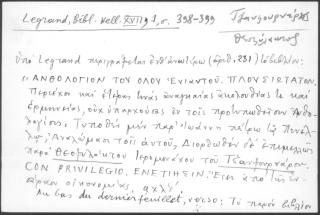 Legrand, Bibl. Hell. XVII, 1, σ. 398-399 Τζανφουρνάρος
Θεοφύλακτος
Ὑπὸ Legrand περιγράφεται (ἀριθ. 281) τὸ βιβλίον:
"ΑΝΘΟΛΟΓΙΟΝ ΤΟΥ ΟΛΟΥ Ενιαυτοῦ. ΠΛΟΥΣΙΩΤΑΤΟΝ,
Περιέχον καὶ ἑτέρας τινὰς ἀναγκαίας ἀκολουθίας τε καὶ
ἑρμηνείας, οὐχ ὑπαρχούσας ἐν τοῖς προτυπωθεῖσιν Ἀνθο-
λογίοις, Τυπωθὲν μὲν παρ' Ἰωάννῃ Πέτρῳ τῷ Πινέλ-
λῳ, Ἀναλώμασι τοῖς αὐτοῦ, Διορθωθὲν δὲ ἐπιμελῶς
παρὰ Θεοφυλάκτου Ἱερομονάχου τοῦ Τζανφουρνάρου.
CON PRIVILEGIO, ΕΝΕΤΙΗΣΙΝ. Ἔτει ἀπὸ τῆς ἐν-
σάρκου οἰκονομίας, αχλ'."
Au bas du dernier feuillet, verso: Τὸ παρὸν βιβλίον